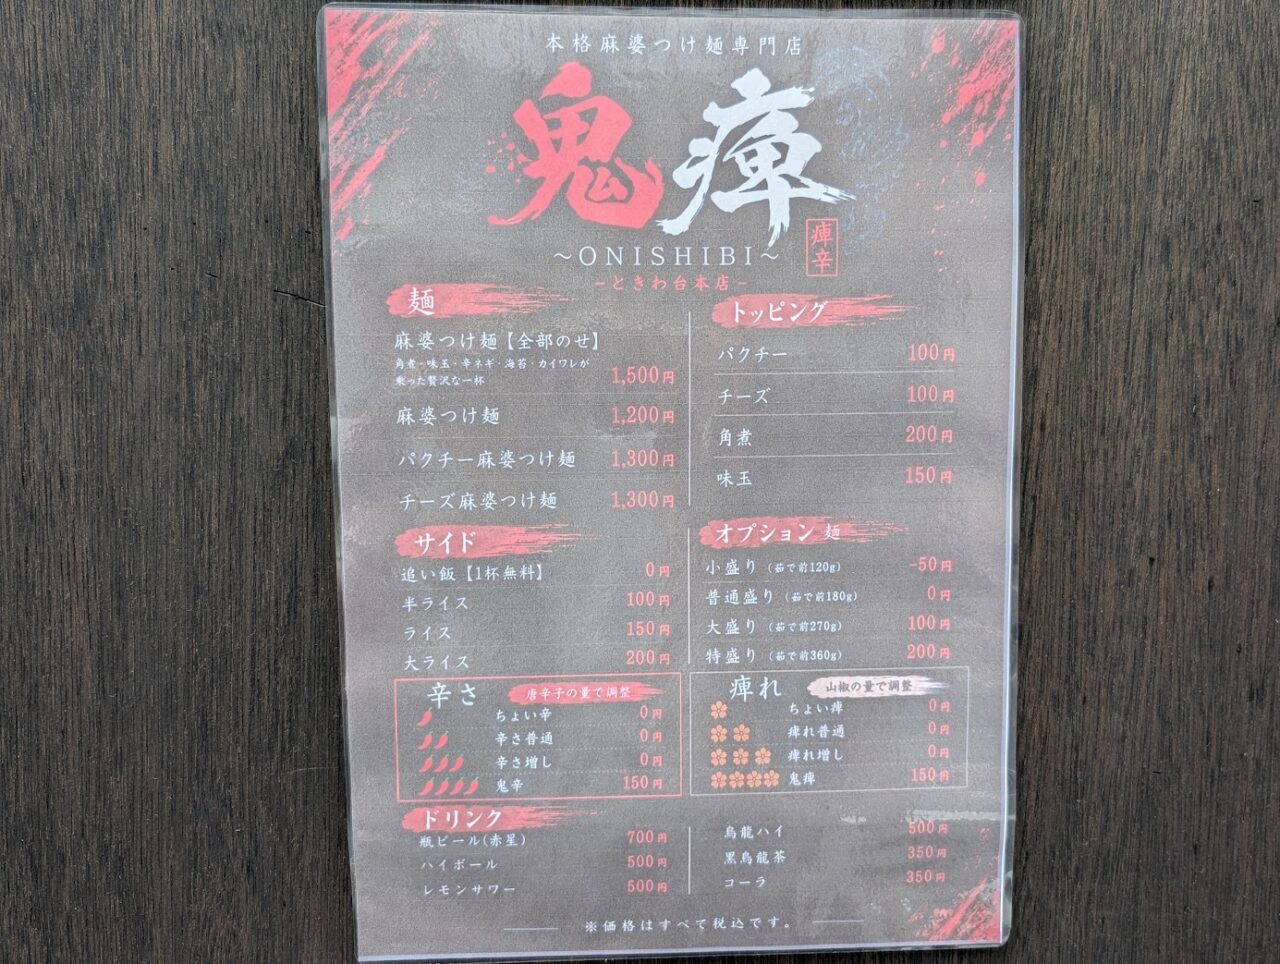 本格麻婆つけ麺専門店
鬼痺
~ONISHIBI~
痺辛
-ときわ台本店-
麺
麻婆つけ麺【全部のせ】
角煮・味玉・辛ネギ・海苔・カイワレが
乗った贅沢な一杯 1,500円
麻婆つけ麺 1,200円
パクチー麻婆つけ麺 1,300円
チーズ麻婆つけ麺 1,300円
トッピング
パクチー 100円
チーズ 100円
角煮 200円
味玉 150円
サイド
追い飯【1杯無料】 0円
半ライス 100円
ライス 150円
大ライス 200円
オプション 麺
小盛り (茹で前120g) -50円
普通盛り (茹で前180g) 0円
大盛り (茹で前270g) 100円
特盛り (茹で前360g) 200円
辛さ 唐辛子の量で調整
ちょい辛 0円
辛さ普通 0円
辛さ増し 0円
鬼辛 150円
痺れ 山椒の量で調整
ちょい痺 0円
痺れ普通 0円
痺れ増し 0円
鬼痺 150円
ドリンク
瓶ビール(赤星) 700円
ハイボール 500円
レモンサワー 500円
烏龍ハイ 500円
黒烏龍茶 350円
コーラ 350円
※価格はすべて税込です。